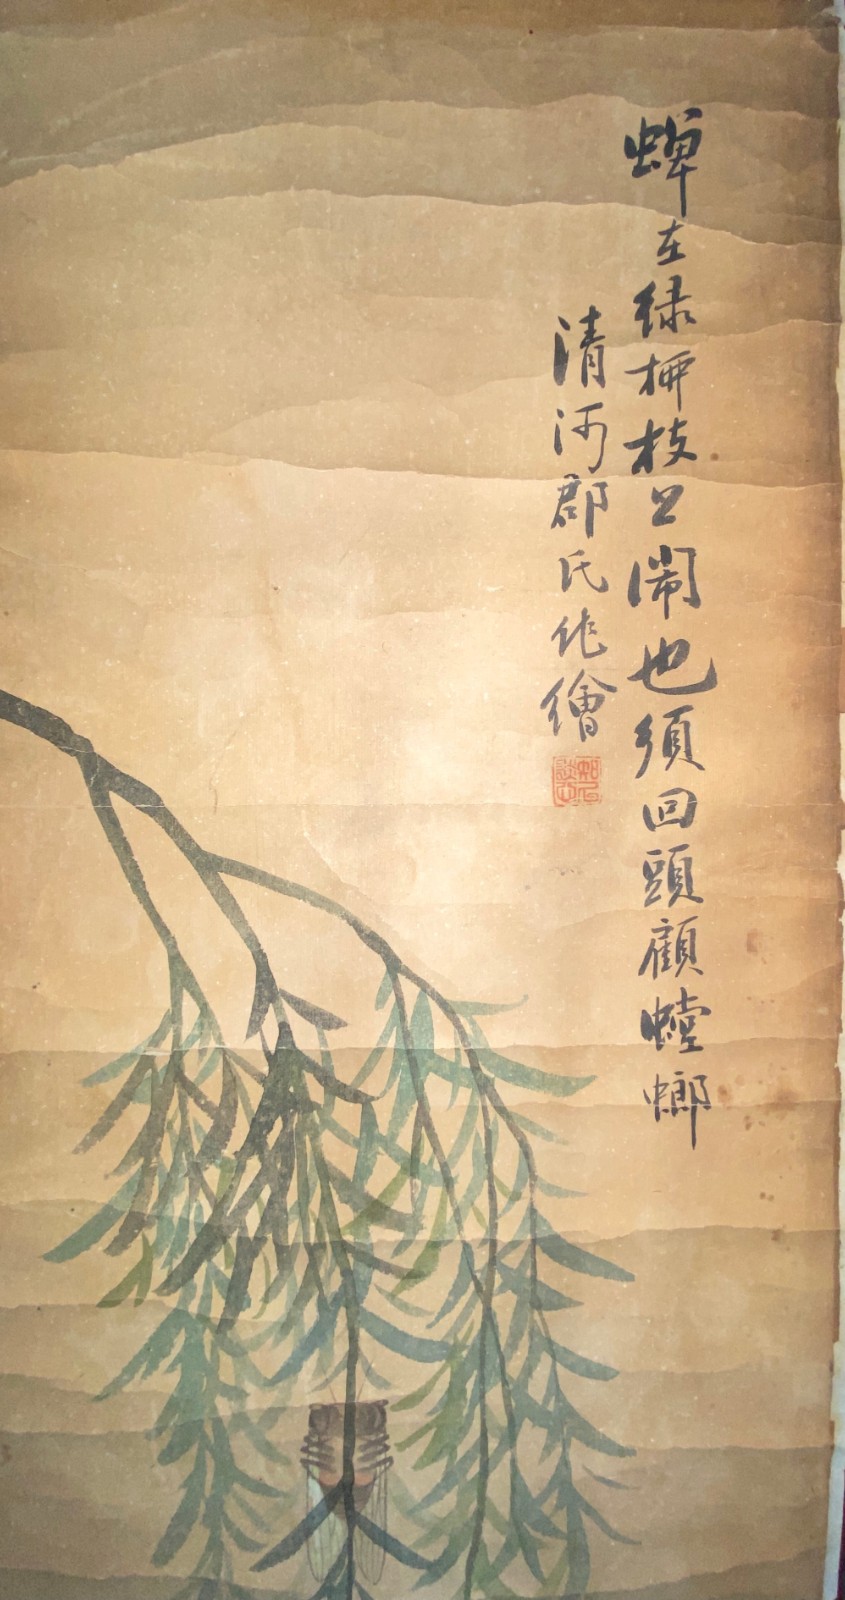 蟬在綠柳枝上鬧也須回頭顧螳螂
清河郡氏作繪